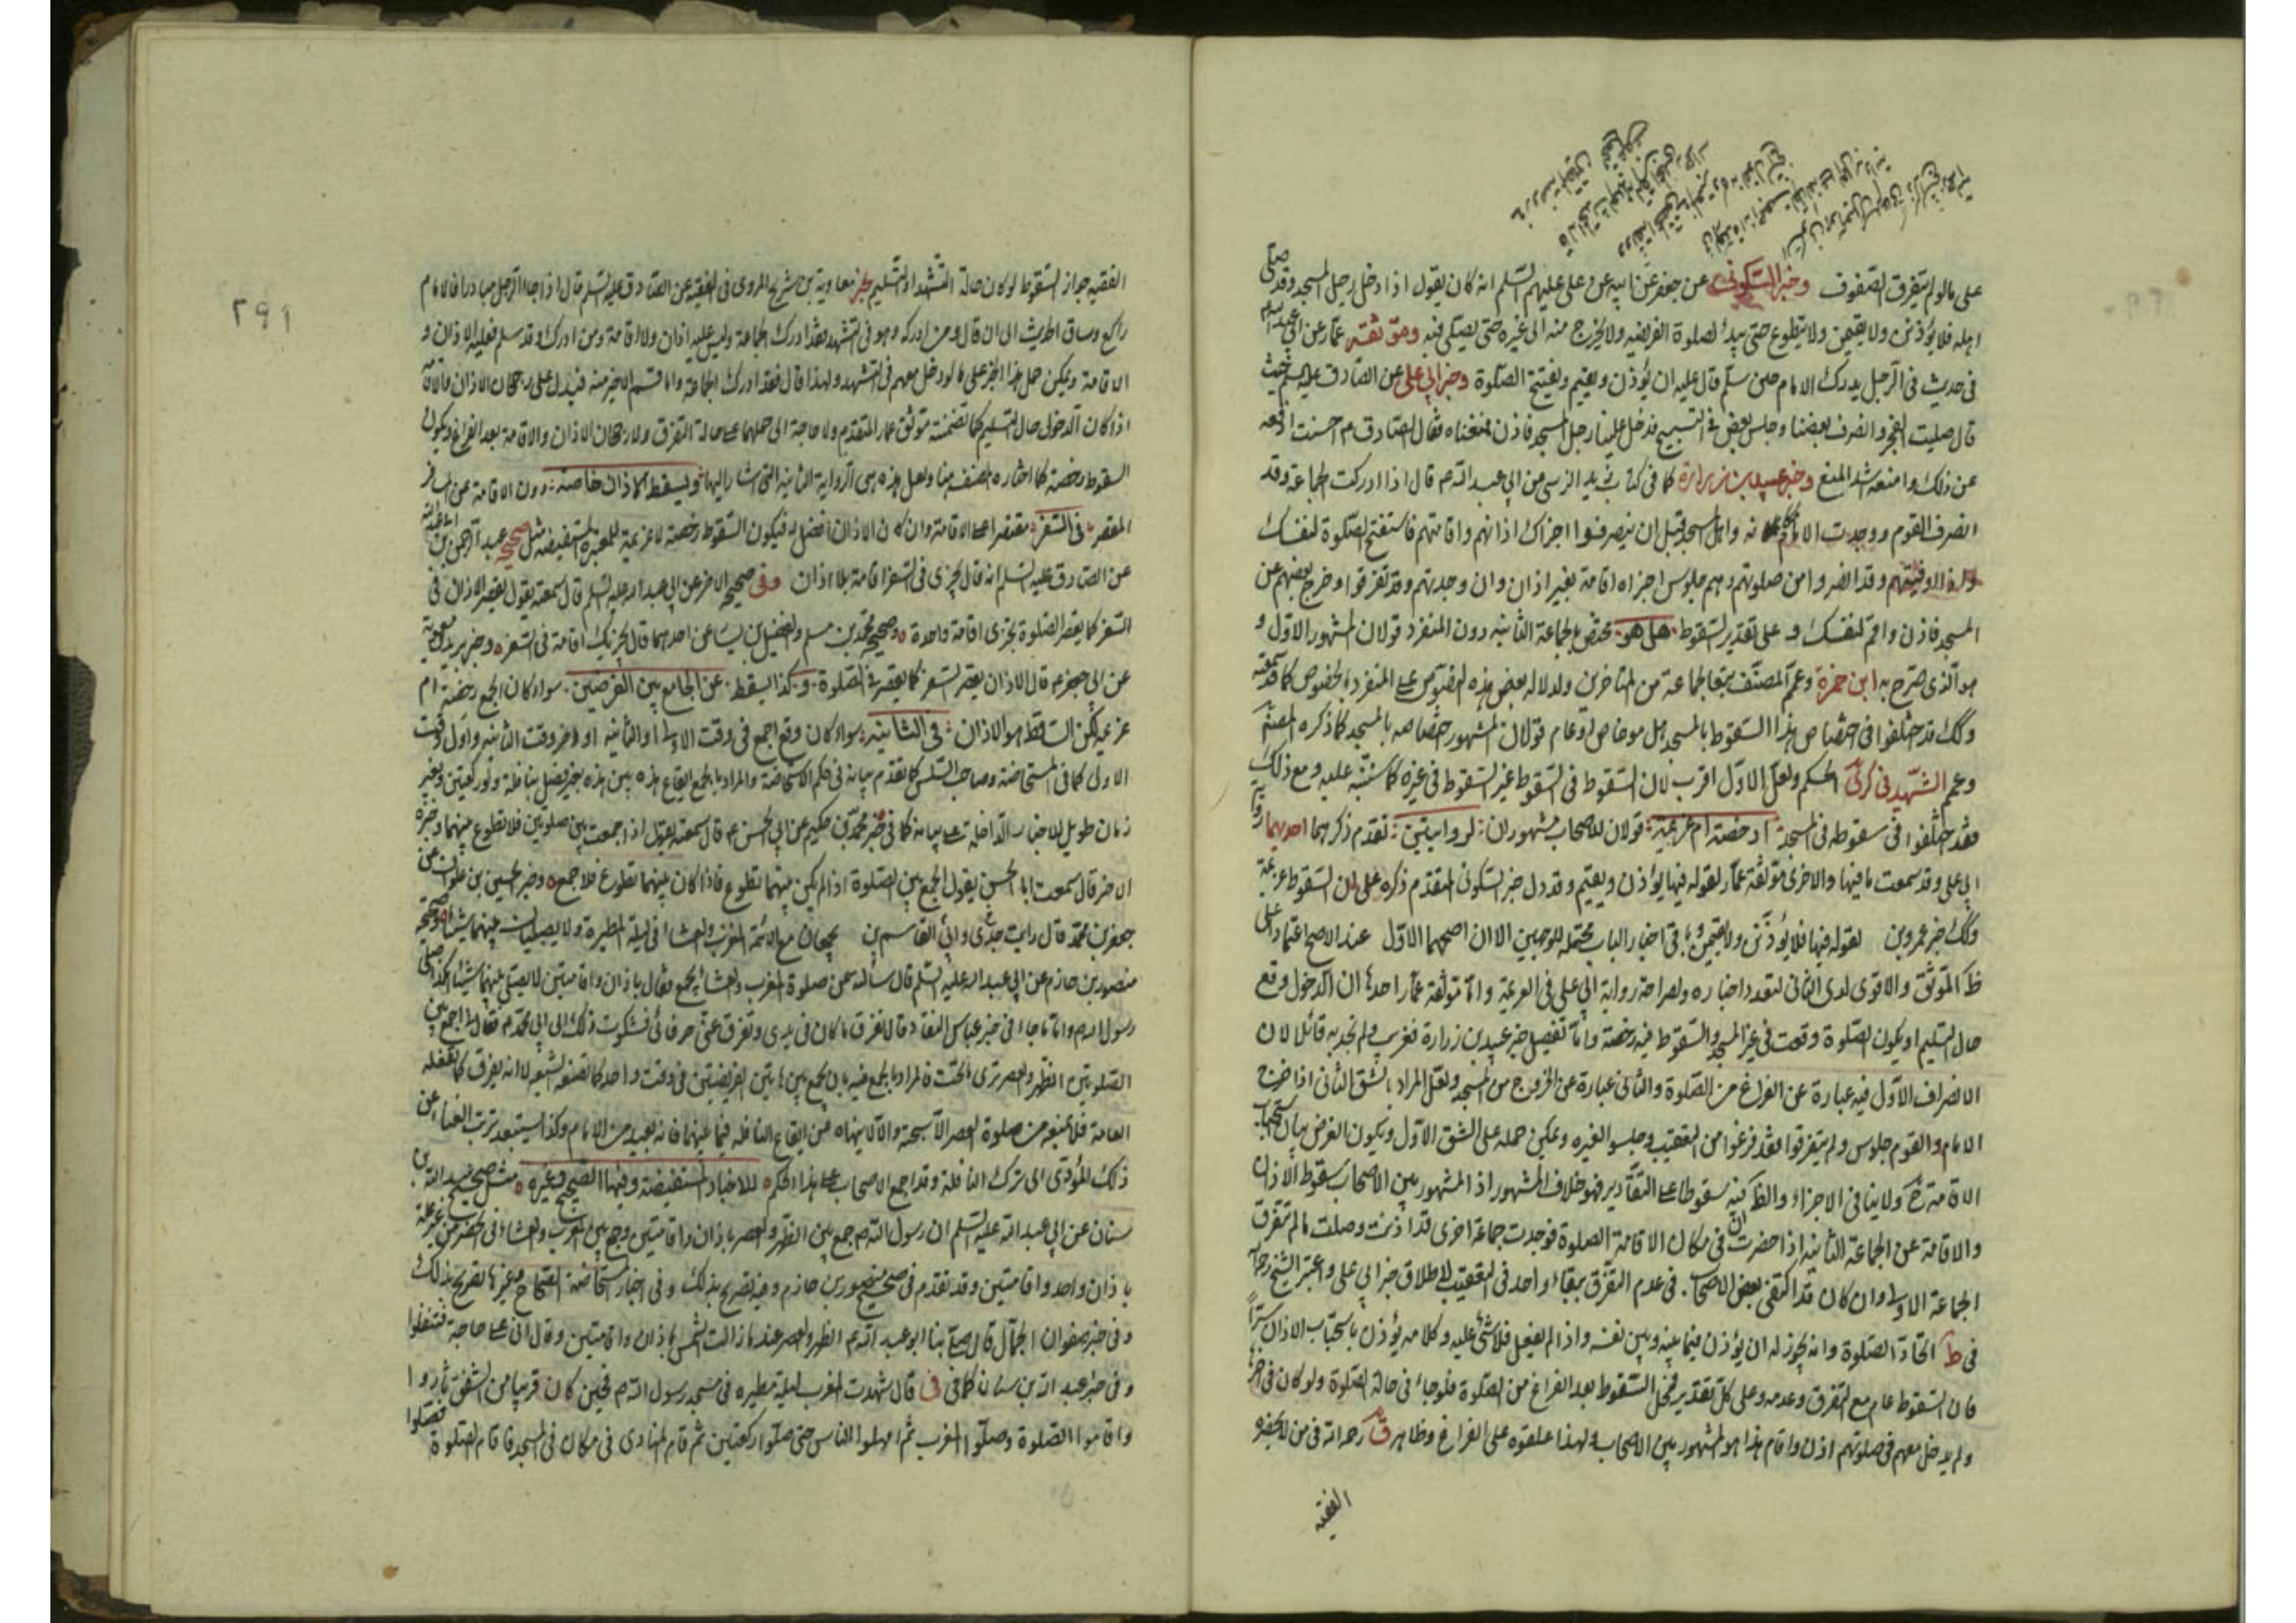 على ما لو لم يتفرق الصفوف وخبر السكوني عن جعفر عن ابيه عن علي عليهم السلم انه كان يقول اذا دخل رجل المسجد وقد صلى
اهله فلا يؤذنن ولا يقيمن ولا يتطوع حتى يبدأ لصلوة الفريضه ولا يخرج منه الى غيره حتى يصلى فيه وموثقته عمار عن ابي عبد الله
في حديث في الرجل يدرك الامام حين سلم قال عليه ان يؤذن ويقيم ويفتتح الصلوة وخبر ابي علي عن الصادق عليه السلم حيث
قال صليت الفجر وانصرف بعضنا وجلس بعض في التسبيح فدخل علينا رجل المسجد فاذن فمنعناه فقال الصادق ع احسنت ادفعه
عن ذلك وامنعه اشد المنع وخبر عبيد بن زرارة كما في كتاب زيد النرسي عن ابي عبد الله ع قال اذا ادركت الجماعة وقد
انصرف القوم ووجدت الامام مكانه واهل المسجد قبل ان ينصرفوا اجزاك اذانهم واقامتهم فاستفتح الصلوة لنفسك
واذا وافيتهم وقد انصرفوا من صلوتهم وهم جلوس اجزاه اقامة بغير اذان وان وجدتهم وقد تفرقوا وخرج بعضهم عن
المسجد فاذن واقم لنفسك و على تقدير السقوط هل هو مختص بالجماعة الثانيه دون المنفرد قولان المشهور الاول و
هو الذي صرح به ابن حمزة وعمم المصنف تبعا لجماعة من المتاخرين ولدلاله بعض هذه النصوص على المنفرد بالخصوص كما قد سمعته
وكك قد اختلفوا في اختصاص هذا السقوط بالمسجد هل هو خاص او عام قولان المشهور اختصاصه بالمسجد كما ذكره المصنف
وعمم الشهيد في كرى الحكم ولعل الاول اقرب لان السقوط في السقوط غير السقوط في غيره كما سننبه عليه ومع ذلك
فقد اختلفوا في سقوطه في المسجد ا رخصة ام عزيمة قولان للاصحاب مشهوران لروايتين تقدم ذكرهما احديهما رواية
ابي علي وقد سمعت ما فيها والاخرى موثقة عمار لقوله فيها يؤذن ويقيم وقد دل خبر السكوني المتقدم ذكره على ان السقوط عزيمة
وكك خبر عمرو بن لقوله فيها فلا يؤذنن ولا يقيمن وباقي اخبار الباب محتمله للوجهين الا ان اصحهما الاول عند الاصح اعتمادا على
ظ الموثق والاقوى لدى الثاني لتعدد اخباره ولصراحة رواية ابي علي في العزيمة واما موثقة عمار احدها ان الدخول وقع
حال التسليم او يكون الصلوة وقعت في غير المسجد والسقوط فيه رخصة واما تفصيل خبر عبيد بن زرارة فغريب ولم نجد به قائلا لان
الانصراف الاول فيه عبارة عن الفراغ من الصلوة والثاني عبارة عن الخروج من المسجد ولعل المراد بالشق الثاني اذا خرج
الامام والقوم جلوس ولم يتفرقوا فقد فرغوا من التعقيب وجلسوا لغيره ويمكن حمله على الشق الاول ويكون الغرض بيان استحباب
الاقامة ح ولا ينافي الاجزاء والظ كونه سقوطا على التقادير فهو خلاف المشهور اذ المشهور بين الاصحاب سقوط الاذان
والاقامة عن الجماعة الثانيه اذا حضرت في مكان لاقامة الصلوة فوجدت جماعة اخرى قد اذنت وصلت ما لم تتفرق
الجماعة الاولى وان كان قد اكتفى بعض الاصحاب في عدم التفرق ببقاء واحد في التعقيب لاطلاق خبر ابي علي واعتبر الشيخ رحمه الله
في ط اتحاد الصلوة وانه يجوز له ان يؤذن فيما بينه وبين نفسه واذا لم يفعل فلا شئ عليه وكلامه يؤذن باستحباب الاذان سرا
فان السقوط عام مع التفرق وعدمه وعلى كل تقدير فمحل السقوط بعد الفراغ من الصلوة فلو جاء في حالة الصلوة ولو كان في اخرها
ولم يدخل معهم في صلوتهم اذن واقام هذا هو المشهور بين الاصحاب ولهذا علقوه على الفراغ وظاهر ق رحمه الله في من لا يحضره
الفقيه
٢٩١
الفقيه جواز السقوط لو كان حالة التشهد او التسليم لخبر معاوية بن شريح المروى في الفقيه عن الصادق عليه السلم قال اذا جاء الرجل مبادرا والامام
راكع وساق الحديث الى ان قال ومن ادركه وهو في التشهد فقد ادرك الجماعة وليس عليه اذان ولا اقامة ومن ادركه وقد سلم فعليه الاذان و
الاقامة ويمكن حمل هذا الخبر على ما لو دخل معهم في التشهد ولهذا قال فقد ادرك الجماعة واما قسم الاخير منه فيدل على رجحان الاذان والاقامة
اذا كان الدخول حال التسليم كما تضمنته موثق عمار المتقدم ولا حاجة الى حملهما على حالة التفرق ولا رجحان الاذان والاقامة بعد الفراغ ويكون
السقوط رخصة كما اختاره المصنف هنا ولعل هذه هي الرواية الثانيه التي اشار اليها ويسقط الاذان خاصة دون الاقامة عن المسافر
المقصر في السفر مقتصرا على الاقامة وان كان الاذان افضل له فيكون السقوط رخصة لا عزيمة للمعتبرة المستفيضه مثل صحيح عبد الرحمن بن ابي عبد الله
عن الصادق عليه السلم انه قال يجزى في السفر اقامة بلا اذان وفي صحيحه الاخر عن ابي عبد الله عليه السلم قال سمعته يقول يقصر الاذان في
السفر كما يقصر الصلوة يجزى اقامة واحدة وصحيح محمد بن مسلم والفضيل بن يسار عن احدهما قال يجزيك اقامة في السفر وخبر بريد بن معوية
عن ابي جعفر ع قال الاذان يقصر في السفر كما يقصر في الصلوة و كذا يسقط عن الجامع بين الفرضين سواء كان الجمع رخصة ام
عزيمة لكن الساقط هو الاذان في الثانيه سواء كان وقع الجمع في وقت الاولى او الثانيه او اخر وقت الثانيه واول وقت
الاولى كما في المستحاضة وصاحب السلس كما تقدم بيانه في حكم الاستحاضة والمراد بالجمع ايقاع هذه بين هذه بغير فصل بنافلة ولو ركعتين وبغير
زمان طويل للاخبار الدالة على بيانه كما في خبر محمد بن حكيم عن ابي الحسن ع قال سمعته يقول اذا جمعت بين صلوتين فلا تطوع بينهما وخبره
الاخر قال سمعت ابا الحسن يقول الجمع بين الصلوة اذا لم يكن بينهما تطوع فاذا كان بينهما تطوع فلا جمع وخبر الحسين بن علوان عن
جعفر بن محمد قال رايت جدي وابي القاسم بن يجمعان مع الائمة المغرب والعشاء في ليلة المطيرة ولا يصليان بينهما شيئا وصحيحه
منصور بن حازم عن ابي عبد الله عليه السلم قال سألته عن صلوة المغرب والعشاء يجمع فقال باذان واقامتين لا يصلى بينهما شيئا هكذا صلى
رسول الله ص واما ما جاء في خبر عباس الناقد قال تفرق ما كان في يدي وتفرق عني حرفائي فشكوت ذلك الى ابي محمد ع فقال لي اجمع بين
الصلوتين الظهر والعصر ترى ما تحب فالمراد بالجمع فيه بان يجمع بين هاتين الفريضتين في وقت واحد كما تصنعه الشيعة لا انه يفرق كما تفعله
العامة فلا يمنعه من صلوة العصر الا سبحته والا لانهاه عن ايقاع النافله فيما بينهما فانه بعيد من الامام وكذا يستبعد ترتب الغناء عن
ذلك المؤدى الى ترك النافلة وقد اجمع الاصحاب على هذا الحكم للاخبار المستفيضة وفيها الصحيح وغيره مثل صحيح عبد الله بن
سنان عن ابي عبد الله عليه السلم ان رسول الله ص جمع بين الظهر والعصر باذان واقامتين وجمع بين المغرب والعشاء في الحضر من غير علة
باذان واحد واقامتين وقد تقدم في صحيح منصور بن حازم وفيه تصريح بذلك وفي اخبار المستحاضة الصحاح وغيرها تصريح بذلك
وفي خبر صفوان الجمال قال صلى بنا ابو عبد الله ع الظهر والعصر عند ما زالت الشمس باذان واقامتين وقال اني على حاجة فتنفلوا
وفي خبر عبد الله بن سنان كما في في قال شهدت المغرب ليلة مطيره في مسجد رسول الله ص فحين كان قريبا من الشفق ثاروا
واقاموا الصلوة وصلوا المغرب ثم امهلوا الناس حتى صلوا ركعتين ثم قام المنادى في مكانه في المسجد فاقام الصلوة فصلوا